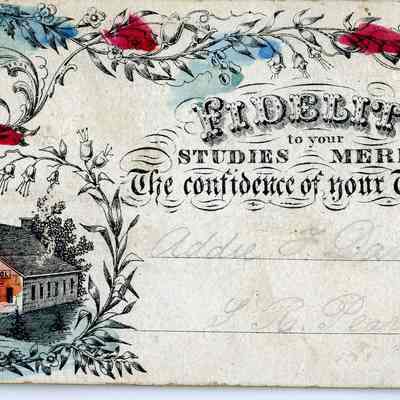 FIDELIT
to your
STUDIES MERI
The confidence of your T
Addie F. Da
S. R. Pea